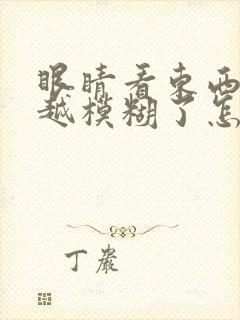 眼睛看東西
越模糊了怎
丁嚴